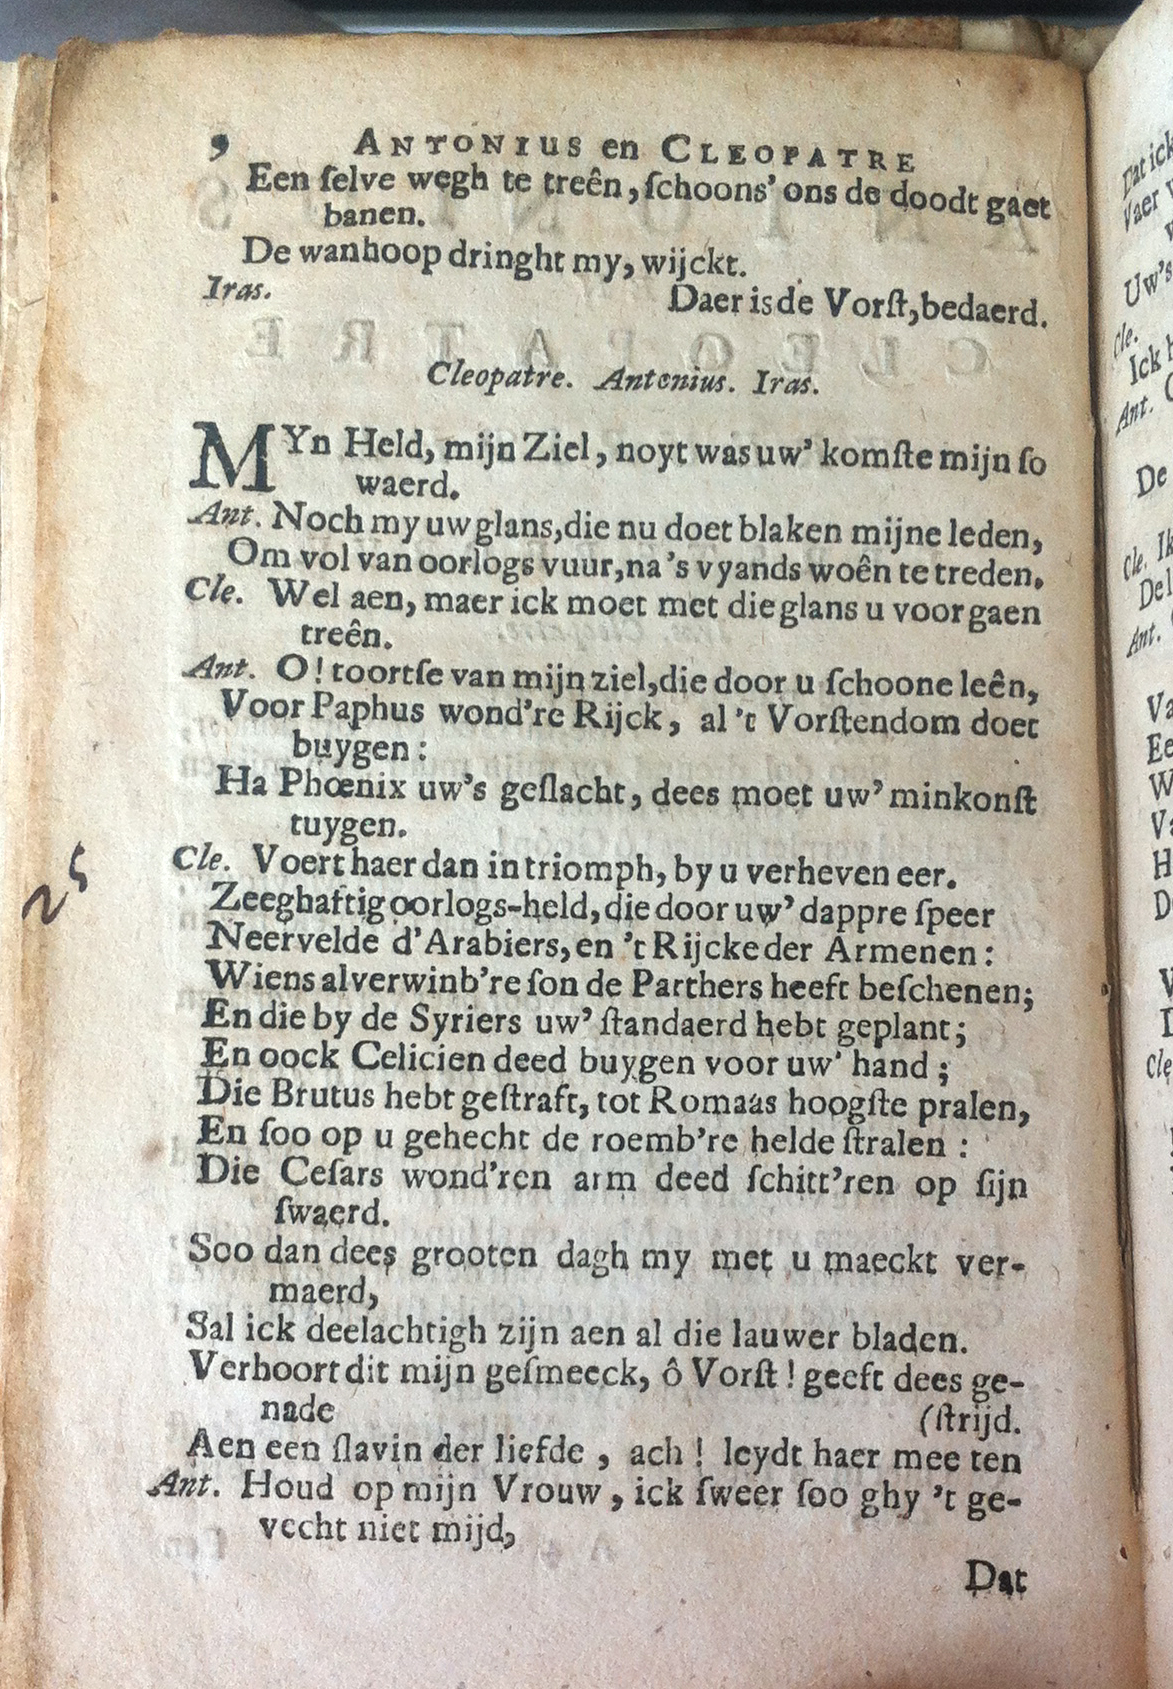 , ANTONIUS en CLEOPATRE
Een ſelve wegh te treên, ſchoons' ons de doodt gaet
banen.
De wanhoop dringht my, wijckt.
Iras. Daer is de Vorſt, bedaerd.
Cleopatre. Antonius. Iras.
MYn Held, mijn Ziel, noyt was uw' komſte mijn ſo
waerd.
Ant. Noch my uw glans, die nu doet blaken mijne leden,
Om vol van oorlogs vuur, na 's vyands woên te treden.
Cle. Wel aen, maer ick moet met die glans u voor gaen
treên.
Ant. O! toortſe van mijn ziel, die door u ſchoone leên,
Voor Paphus wond're Rijck, al 't Vorſtendom doet
buygen:
Ha Phœnix uw's geſlacht, dees moet uw' minkonſt
tuygen.
Cle. Voert haer dan in triomph, by u verheven eer.
Zeeghaftig oorlogs-held, die door uw' dappre ſpeer
Neervelde d'Arabiers, en 't Rijcke der Armenen:
Wiens alverwinb're ſon de Parthers heeft beſchenen;
En die by de Syriers uw' ſtandaerd hebt geplant;
En oock Celicien deed buygen voor uw' hand;
Die Brutus hebt geſtraft, tot Romaas hoogſte pralen,
En ſoo op u gehecht de roemb're helde ſtralen:
Die Ceſars wond'ren arm deed ſchitt'ren op ſijn
ſwaerd.
Soo dan dees grooten dagh my met u maeckt ver-
maerd,
Sal ick deelachtigh zijn aen al die lauwer bladen.
Verhoort dit mijn geſmeeck, ô Vorſt! geeft dees ge-
nade (ſtrijd.
Aen een ſlavin der liefde, ach! leydt haer mee ten
Ant. Houd op mijn Vrouw, ick ſweer ſoo ghy 't ge-
vecht niet mijd,
Dat
25
Dat ick
Vaer
Uw's
Cle.
Ick
Ant.
De
Cle. Ik
Del
Ant.
Va
Ee
W
Va
H
D
V
Cle